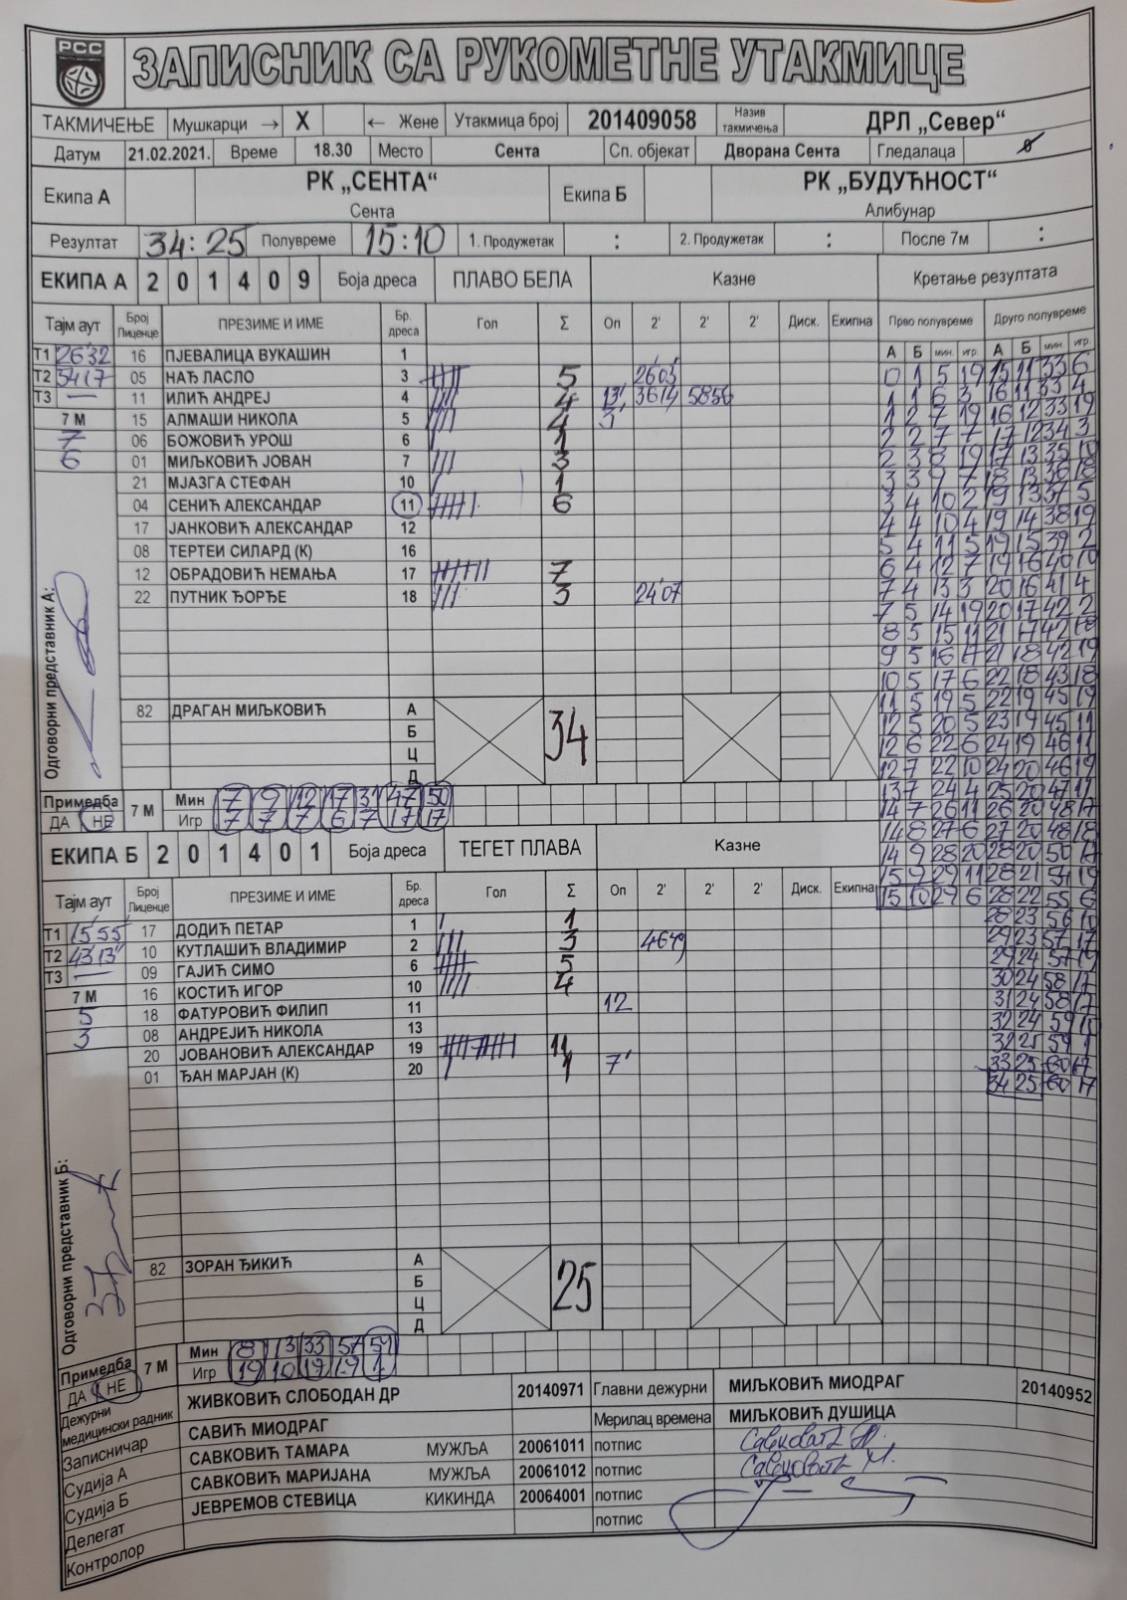 РСС
ЗАПИСНИК СА РУКОМЕТНЕ УТАКМИЦЕ
ТАКМИЧЕЊЕ Мушкарци → X ← Жене Утакмица број 201409058 Назив такмичења ДРЛ „Север“
Датум 21.02.2021. Време 18.30 Место Сента Сп. објекат Дворана Сента Гледалаца
Екипа А РК „СЕНТА“ Сента Екипа Б РК „БУДУЋНОСТ“ Алибунар
Резултат 34:25 Полувреме 15:10 1. Продужетак : 2. Продужетак : После 7м :
ЕКИПА А 2 0 1 4 0 9 Боја дреса ПЛАВО БЕЛА Казне Кретање резултата
Тајм аут Број Лиценце ПРЕЗИМЕ И ИМЕ Бр. дреса Гол Σ Оп 2' 2' 2' Диск. Екипна Прво полувреме Друго полувреме
А Б мин. игр. А Б мин. игр.
Т1 26 32 16 ПЈЕВАЛИЦА ВУКАШИН 1
Т2 54 17 05 НАЂ ЛАСЛО 3 5 26 03
Т3 — 11 ИЛИЋ АНДРЕЈ 4 4 13' 36 14 58 56
7 М 15 АЛМАШИ НИКОЛА 5 4
7 06 БОЖОВИЋ УРОШ 6 1
6 01 МИЉКОВИЋ ЈОВАН 7 3
21 МЈАЗГА СТЕФАН 10 1
04 СЕНИЋ АЛЕКСАНДАР 11 6
17 ЈАНКОВИЋ АЛЕКСАНДАР 12
08 ТЕРТЕИ СИЛАРД (К) 16
12 ОБРАДОВИЋ НЕМАЊА 17 7
22 ПУТНИК ЂОРЂЕ 18 3 24 07
Одговорни представник А:
82 ДРАГАН МИЉКОВИЋ А 34
Б
Ц
Д
0 1 5 19 15 11 33 6
1 1 6 3 16 11 33 4
1 2 7 19 16 12 33 19
2 2 7 7 17 12 34 3
2 3 8 19 17 13 35 10
3 3 9 7 18 13 36 18
3 4 10 2 19 13 37 5
4 4 10 4 19 14 38 19
5 4 11 5 19 15 39 2
6 4 12 7 19 16 40 19
7 4 13 3 20 16 41 4
7 5 14 19 20 17 42 2
8 5 15 11 21 17 42 18
9 5 16 17 21 18 42 19
10 5 17 6 22 18 43 18
11 5 19 5 22 19 45 19
12 5 20 5 23 19 45 11
12 6 22 6 24 19 46 11
12 7 22 10 24 20 46 19
13 7 24 4 25 20 47 17
14 7 26 11 26 20 48 17
14 8 27 6 27 20 48 18
14 9 28 20 28 20 50 17
15 9 29 11 28 21 54 19
15 10 29 6 28 22 55 6
28 23 56 10
29 23 57 17
29 24 57 19
30 24 58 17
31 24 58 17
32 24 59 18
32 25 59 1
33 25 60 17
34 25 60 17
Примедба ДА НЕ 7 М Мин 7 9 12 17 31 47 50
Игр 7 7 7 6 7 17 17
ЕКИПА Б 2 0 1 4 0 1 Боја дреса ТЕГЕТ ПЛАВА Казне
Тајм аут Број Лиценце ПРЕЗИМЕ И ИМЕ Бр. дреса Гол Σ Оп 2' 2' 2' Диск. Екипна
Т1 15 55 17 ДОДИЋ ПЕТАР 1 1
Т2 43 13 10 КУТЛАШИЋ ВЛАДИМИР 2 3 46 49
Т3 — 09 ГАЈИЋ СИМО 6 5
7 М 16 КОСТИЋ ИГОР 10 4
5 18 ФАТУРОВИЋ ФИЛИП 11 12
3 08 АНДРЕЈИЋ НИКОЛА 13
20 ЈОВАНОВИЋ АЛЕКСАНДАР 19 11
01 ЂАН МАРЈАН (К) 20 1 7'
Одговорни представник Б:
82 ЗОРАН ЂИКИЋ А 25
Б
Ц
Д
Примедба ДА НЕ 7 М Мин 8 13 33 57 59
Игр 19 10 19 19 1
Дежурни медицински радник ЖИВКОВИЋ СЛОБОДАН ДР 20140971 Главни дежурни МИЉКОВИЋ МИОДРАГ 20140952
Записничар САВИЋ МИОДРАГ Мерилац времена МИЉКОВИЋ ДУШИЦА
Судија А САВКОВИЋ ТАМАРА МУЖЉА 20061011 потпис Савковић Т.
Судија Б САВКОВИЋ МАРИЈАНА МУЖЉА 20061012 потпис Савковић М.
Делегат ЈЕВРЕМОВ СТЕВИЦА КИКИНДА 20064001 потпис
Контролор потпис